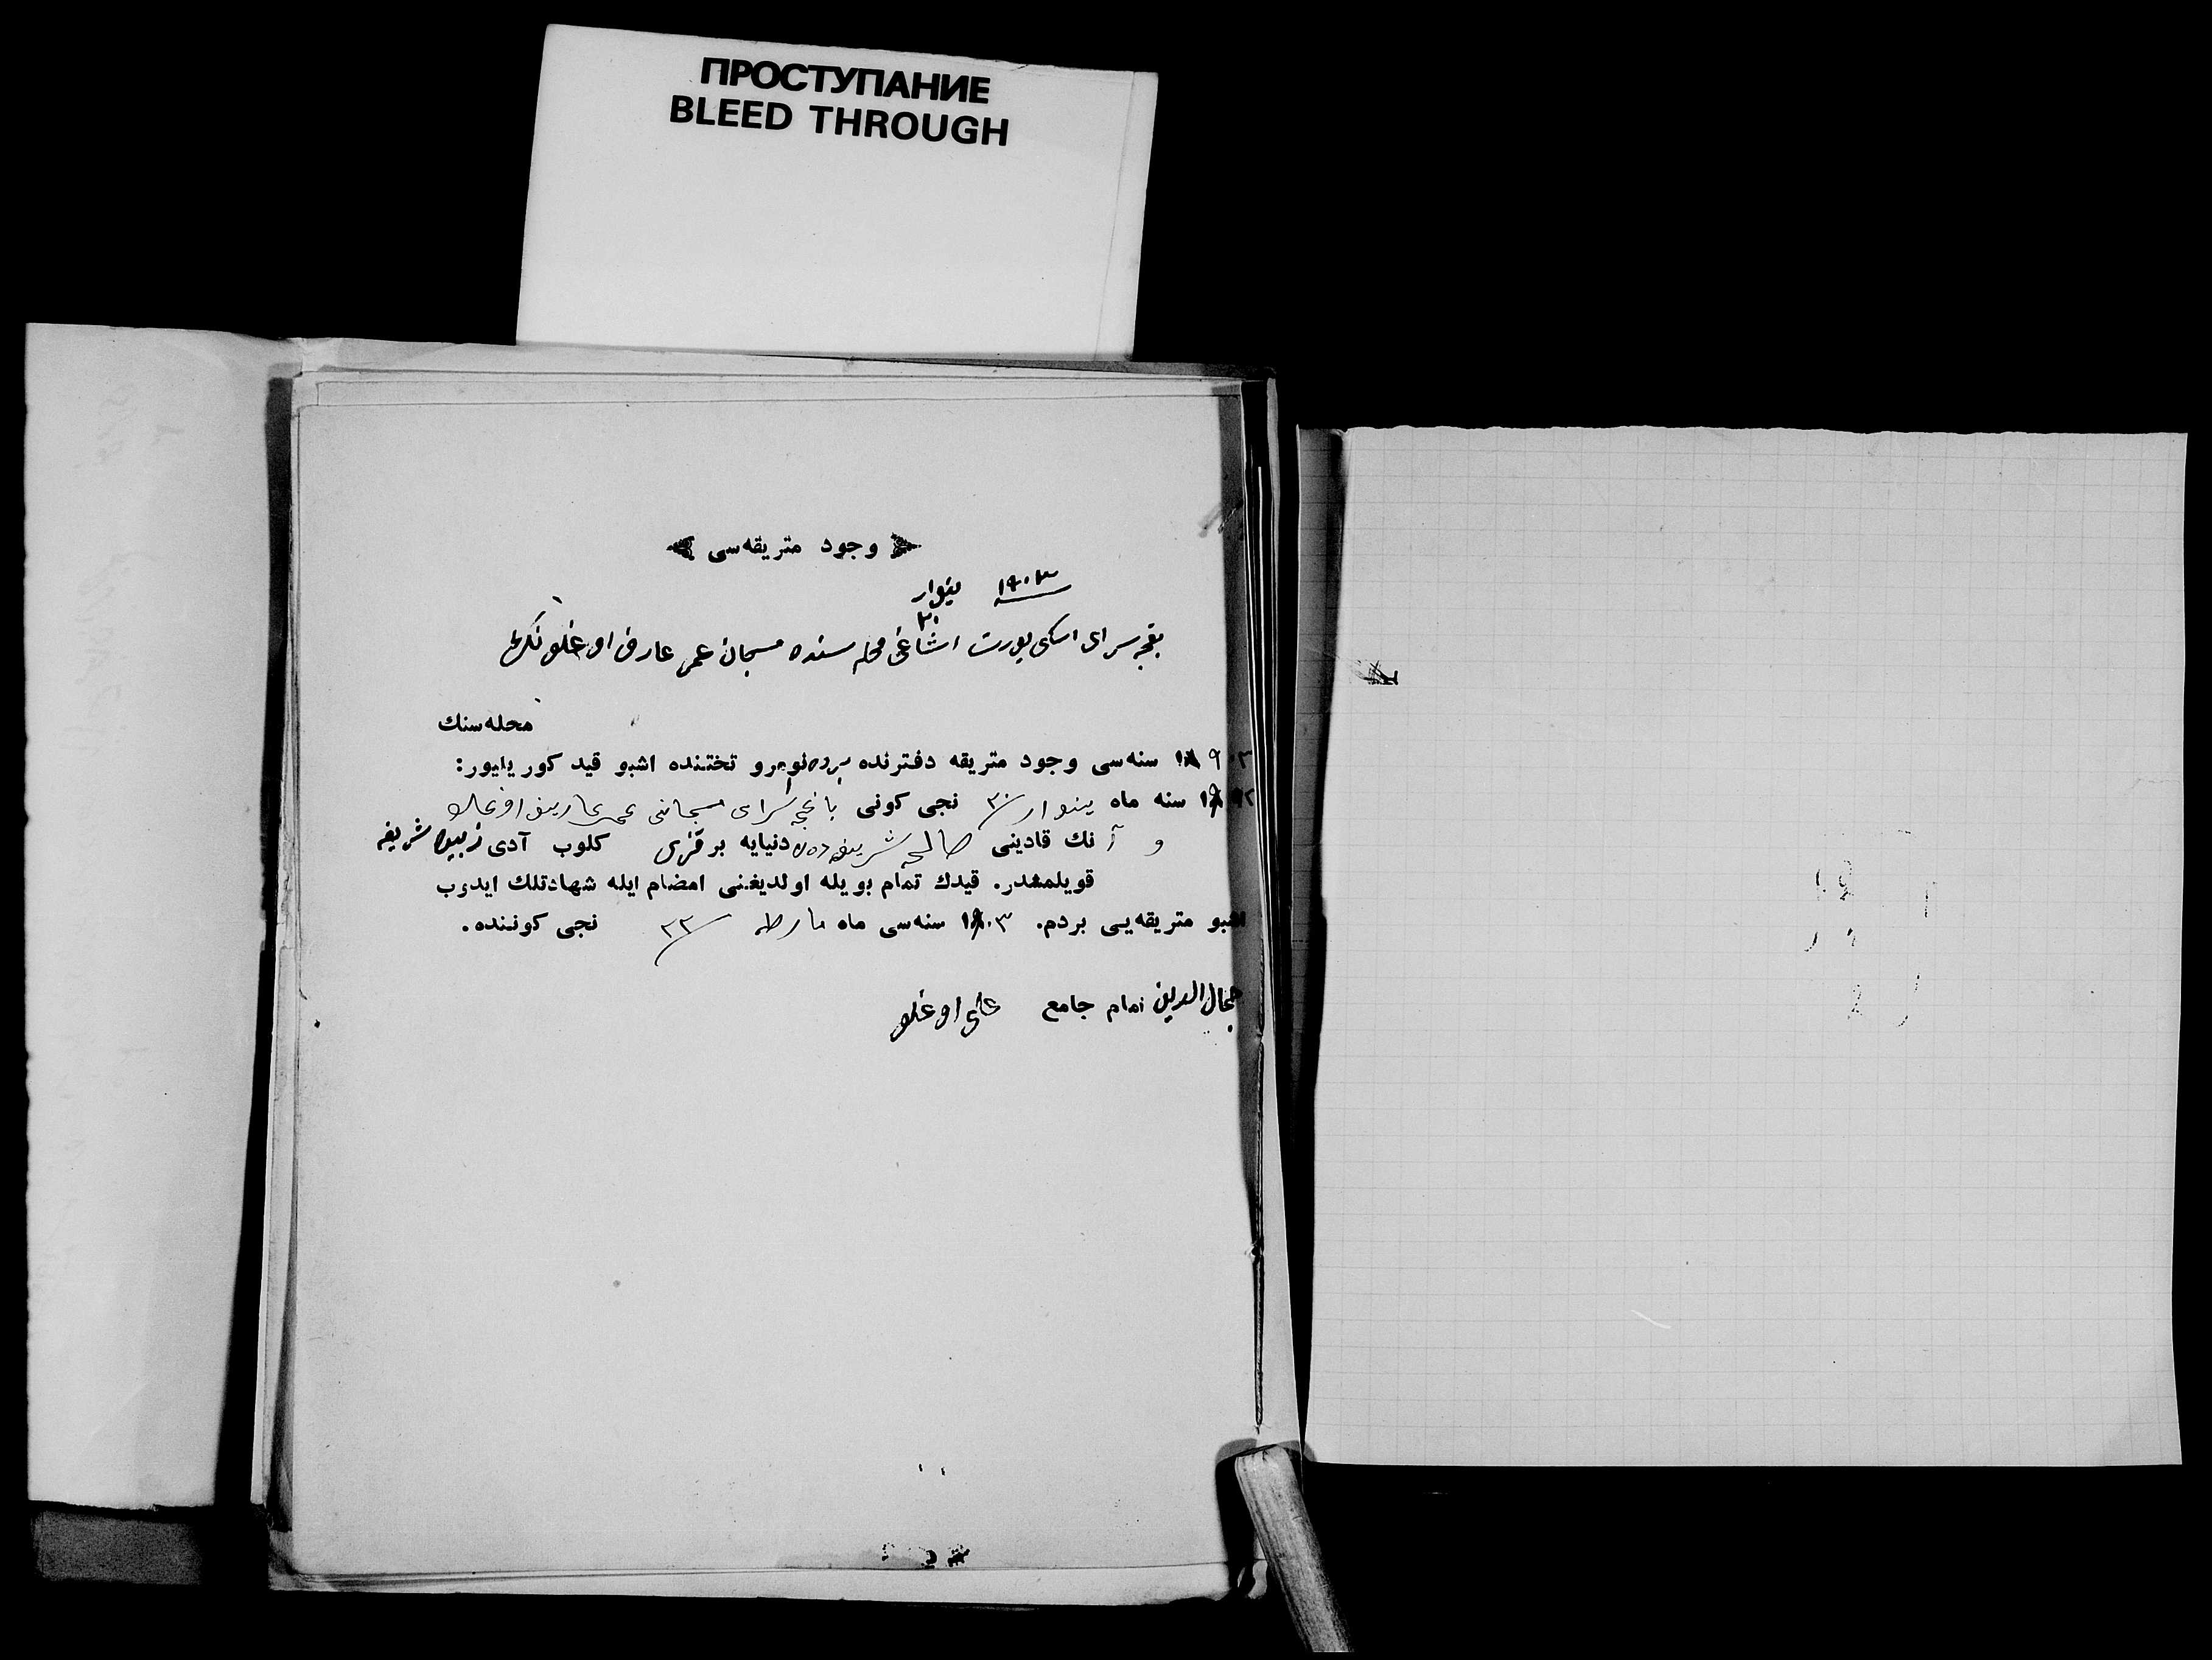 ПРОСТУПАНИЕ
BLEED THROUGH
وجود متریقه‌سی
۱۹۰۳ ینوار
۳۰
بقچه سرای اسکی یورت اشاغی محله سنده مسجان عمر عارف اوغلو نك
محله‌سنك
۹۰۳ سنه‌سی وجود متریقه دفترنده نومرو تختنده اشبو قید کوریلیور:
سنه ماه ینوار ۳۰ نجی کونی باغچه سرای عمر عارف اوغلو
و آنك قادینی صالحه شریفه دن دنیایه بر قزی کلوب آدی زبیده شریفه
قویلمشدر. قیدك تمام بویله اولدیغنی امضام ایله شهادتلك ایدوب
اشبو متریقه‌یی بردم. ۱۹۰۳ سنه‌سی ماه مارط ۲۳ نجی کوننده.
جمال الدین امام جامع علی اوغلو